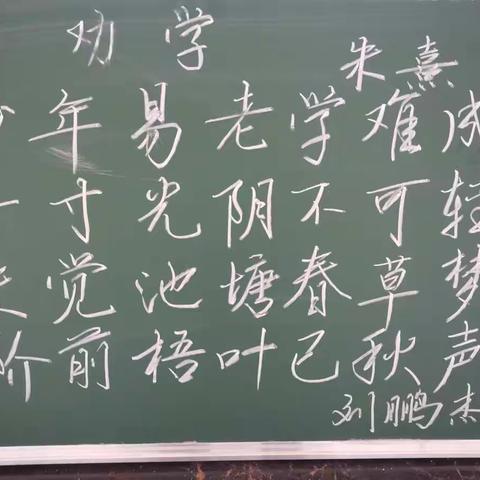 劝学
朱熹
少年易老学难成
一寸光阴不可轻
未觉池塘春草梦
阶前梧叶已秋声
刘鹏杰